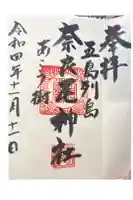 奉拝
五島列島
奈良尾神社
あこう樹
令和四年十一月十二日